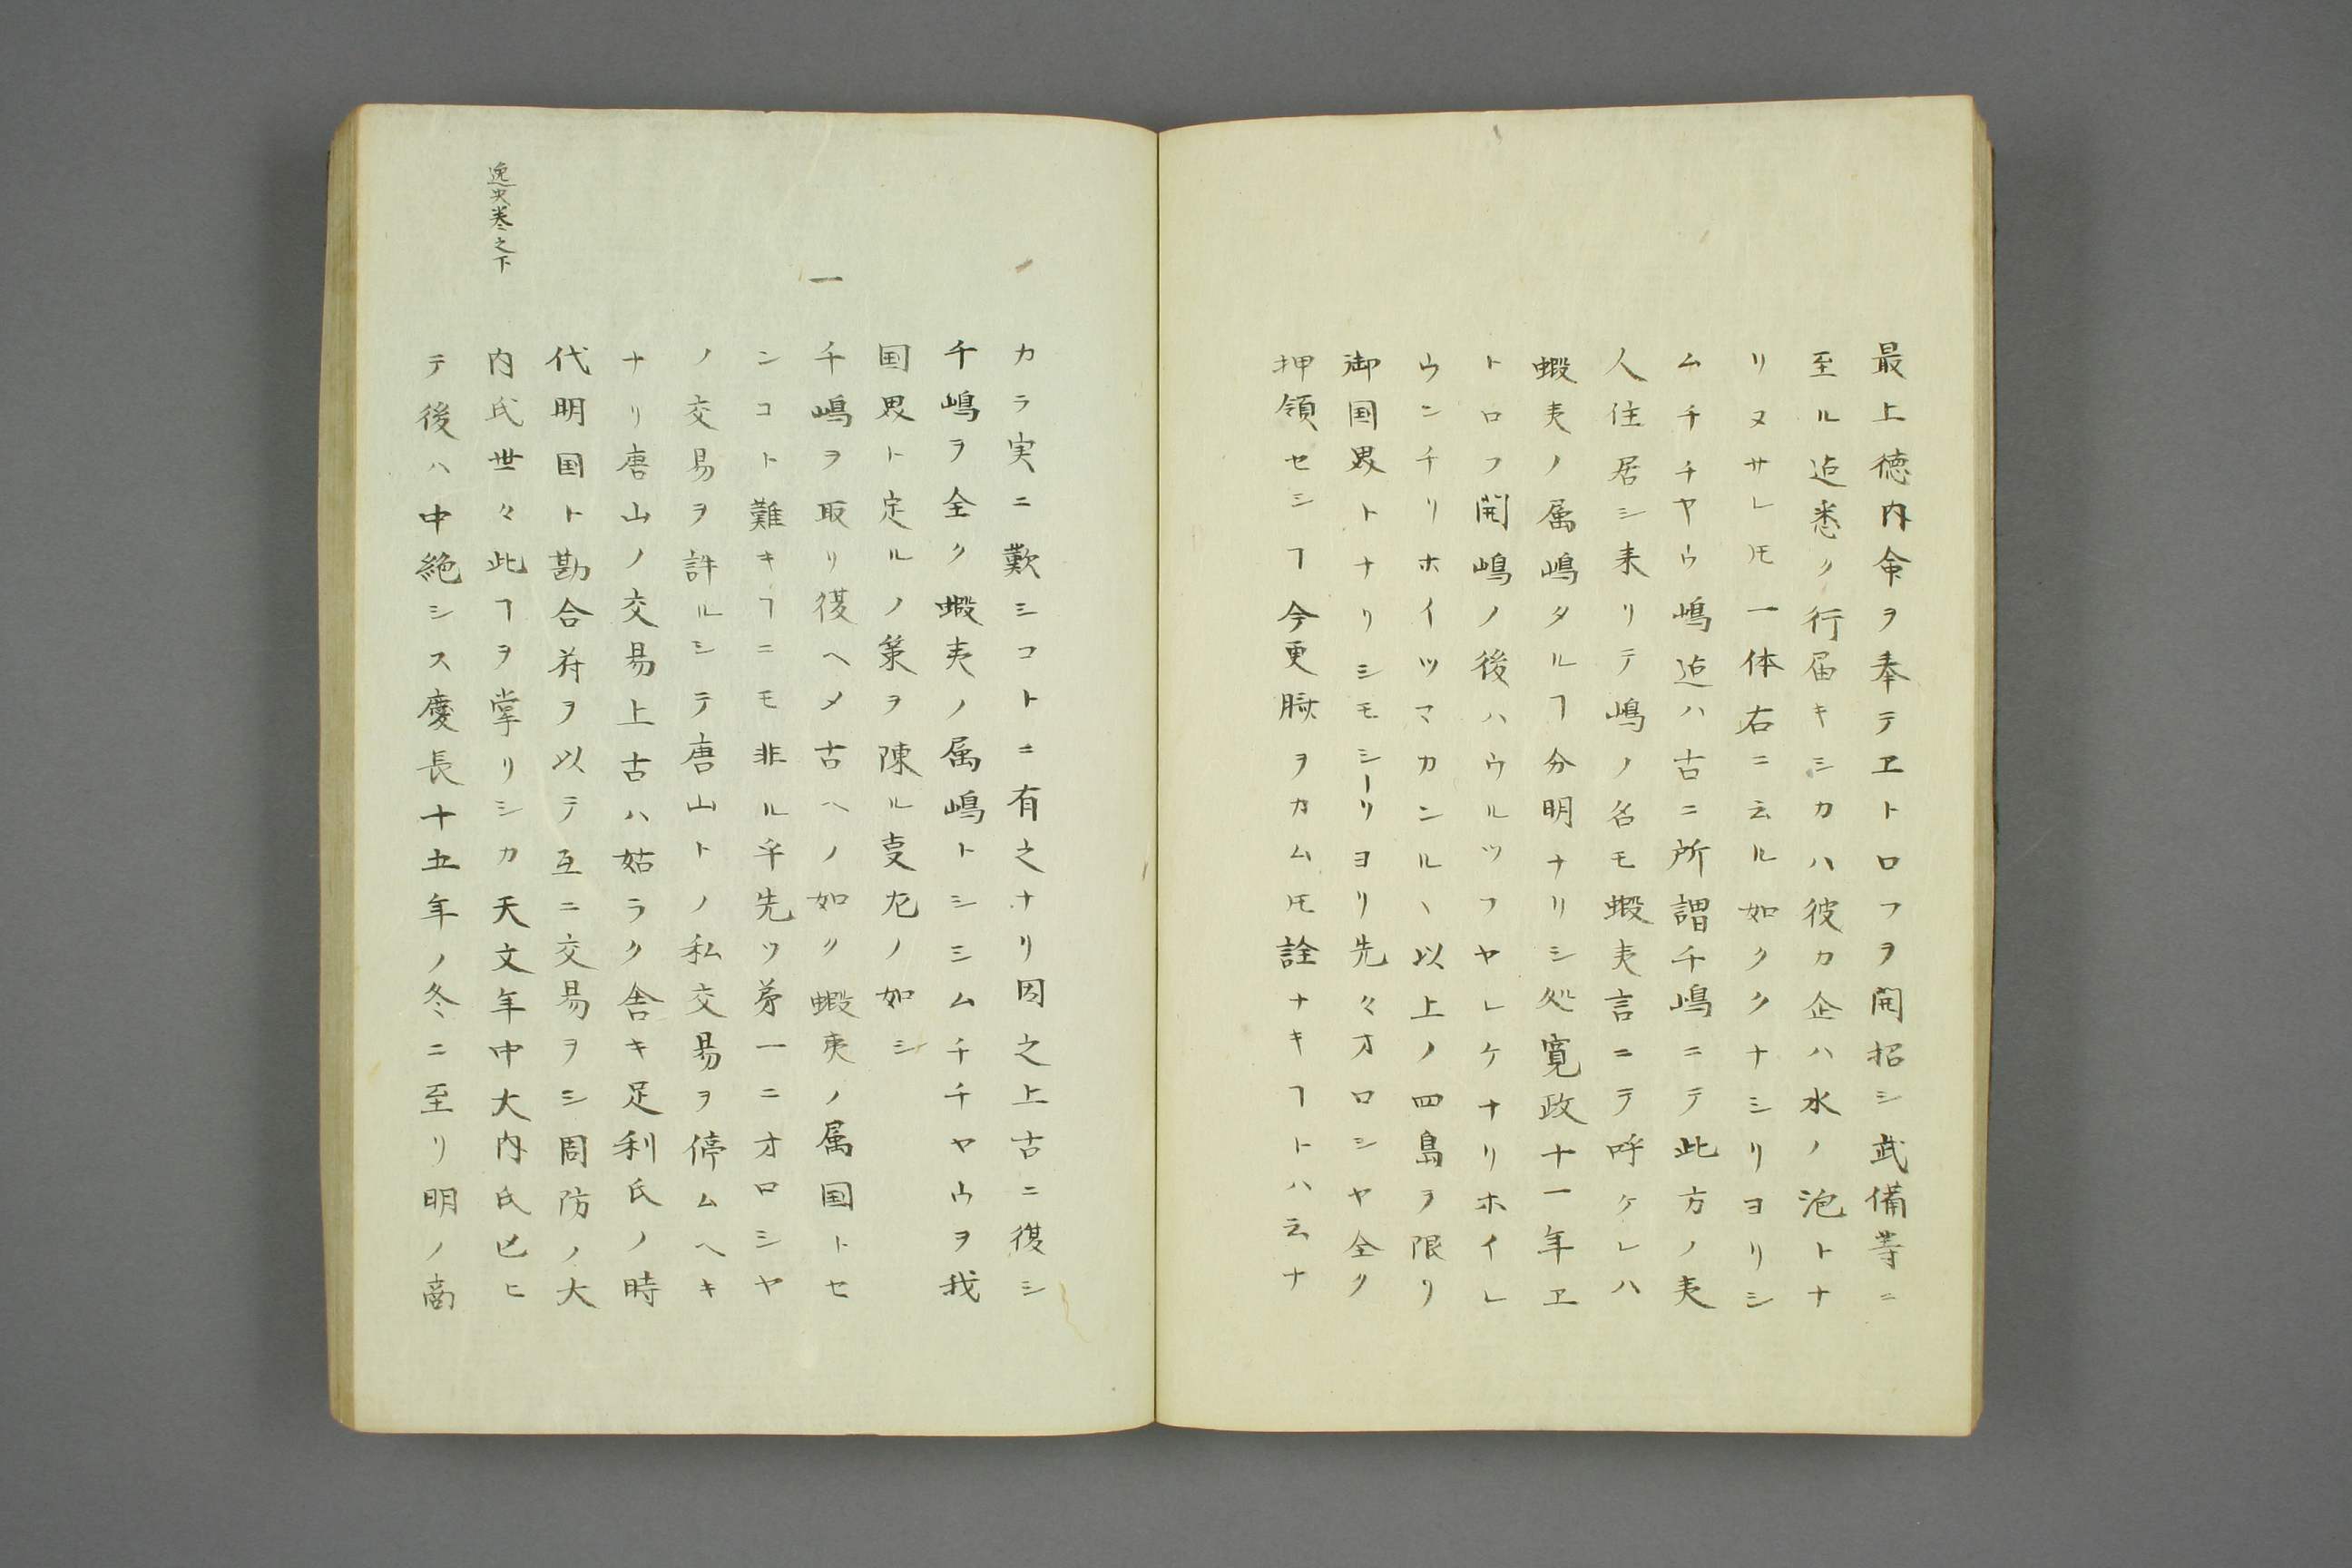 最上徳内命ヲ奉テヱトロフヲ開招シ武備等ニ
至ル迠悉ク行届キシカハ彼カ企ハ水ノ泡トナ
リヌサレ𪜈一体右ニ云ル如クウナシリヨリシ
ムチチヤウ嶋迠ハ古ニ所謂千嶋ニテ此方ノ夷
人住居シ来リテ嶋ノ名モ蝦夷言ニテ呼ケレハ
蝦夷ノ属嶋タルヿ分明ナリシ処寛政十一年ヱ
トロフ開嶋ノ後ハウルツフヤレケナリホイレ
ウンチリホイツマカンルヽ以上ノ四島ヲ限リ
御国界トナリシモシーリヨリ先々オロシヤ全ク
押領セシヿ今更臍ヲカム𪜈詮ナキヿトハ云ナ
カラ実ニ歎シコトニ有之ナリ因之上古ニ復シ
千嶋ヲ全ク蝦夷ノ属嶋トシシムチチヤウヲ我
国界ト定ルノ策ヲ陳ル叓左ノ如シ
一 千嶋ヲ取リ復ヘメ古ヘノ如ク蝦夷ノ属国トセ
ンコト難キヿニモ非ル乎先ツ第一ニオロシヤ
ノ交易ヲ許ルシテ唐山トノ私交易ヲ停ムヘキ
ナリ唐山ノ交易上古ハ姑ラク舎キ足利氏ノ時
代明国ト勘合符ヲ以テ互ニ交易ヲシ周防ノ大
内氏世々此ヿヲ掌リシカ天文年中大内氏亡ヒ
テ後ハ中絶シス慶長十五年ノ冬ニ至リ明ノ商
逸史巻之下